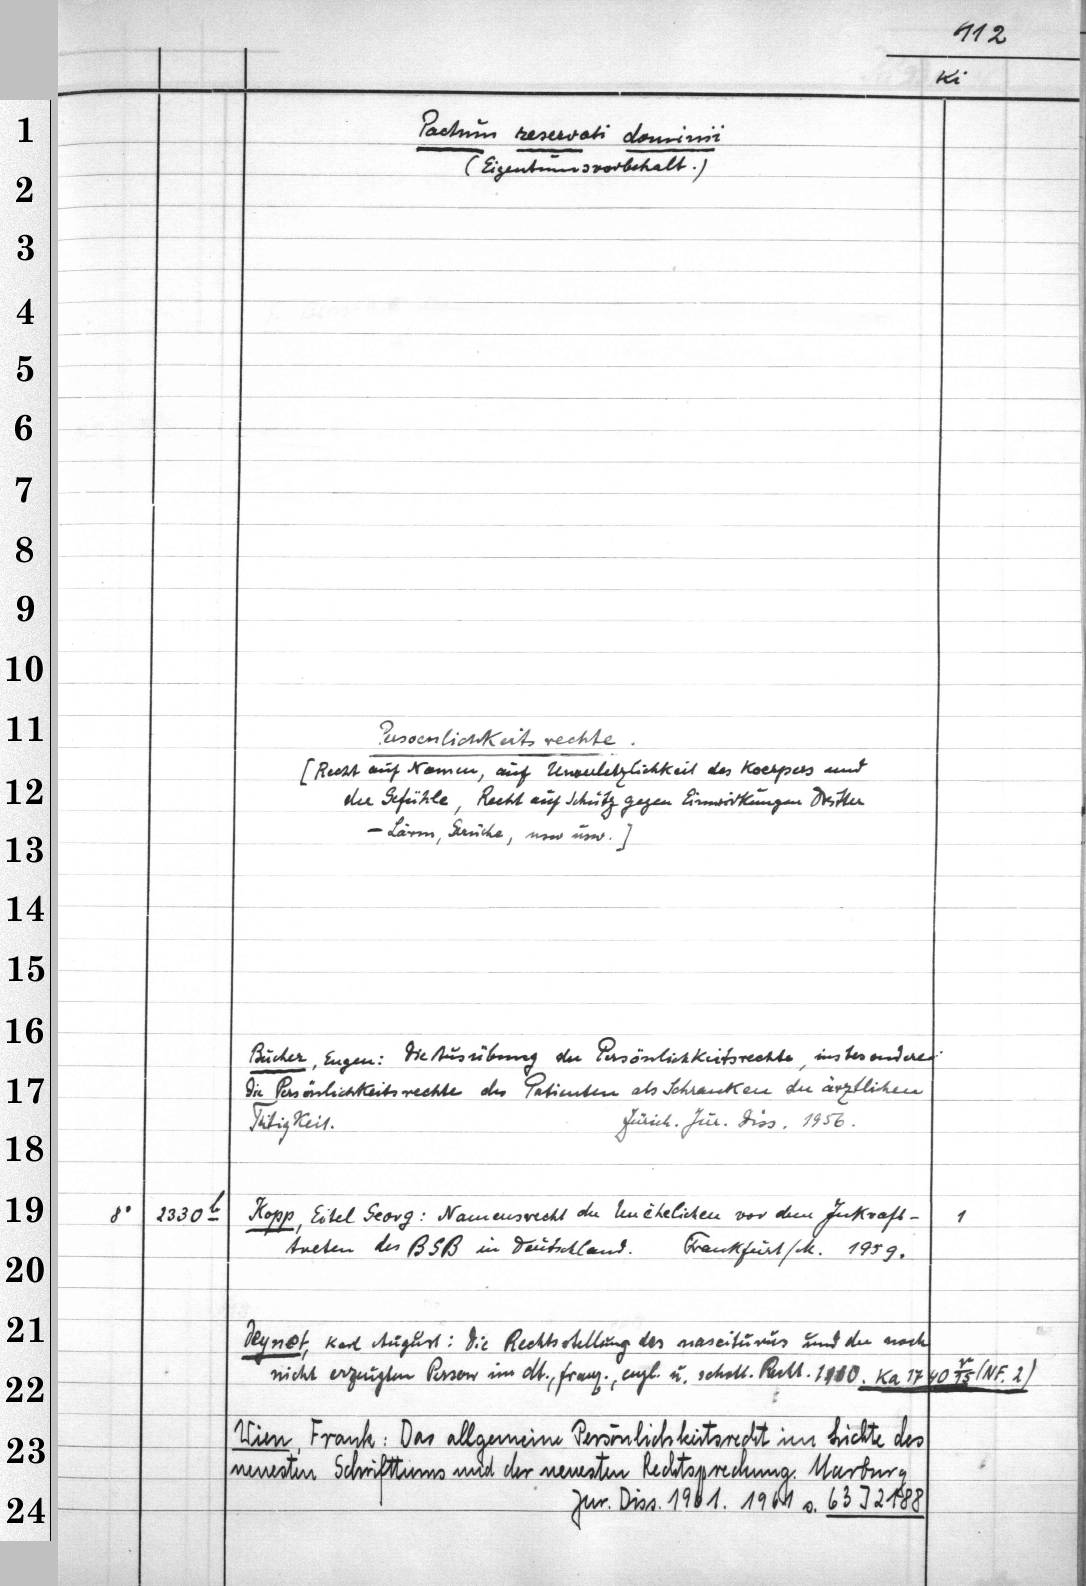 112
Ki
1
Pactum reservati dominii
(Eigentumsvorbehalt.)
2
3
4
5
6
7
8
9
10
11
Persoenlichkeitsrechte.
[Recht auf Namen, auf Unverletzlichkeit des Koerpers und
12
der Gefühle, Recht auf Schutz gegen Einwirkungen Dritter
– Lärm, Gerüche, usw usw.]
13
14
15
16
Bucher, Eugen: Die Ausübung der Persönlichkeitsrechte, insbesondere
17
die Persönlichkeitsrechte des Patienten als Schranken der ärztlichen
Tätigkeit. Zürich. Jur. Diss. 1956.
18
19
8° 2330 b Kopp, Eitel Georg: Namensrecht der Unehelichen vor dem Inkraft- 1
treten des BGB in Deutschland. Frankfurt/M. 1959.
20
21
Karl August: Die Rechtsstellung des nasciturus und der noch
nicht erzeugten Person im dt., franz., engl. u. schott. Recht. Ka 1740 (NF. 2)
22
Wien, Frank: Das allgemeine Persönlichkeitsrecht im Lichte des
23
neuesten Schrifttums und der neuesten Rechtsprechung. Marburg
Jur. Diss. 1961. 1961 s. 63 J 2188
24